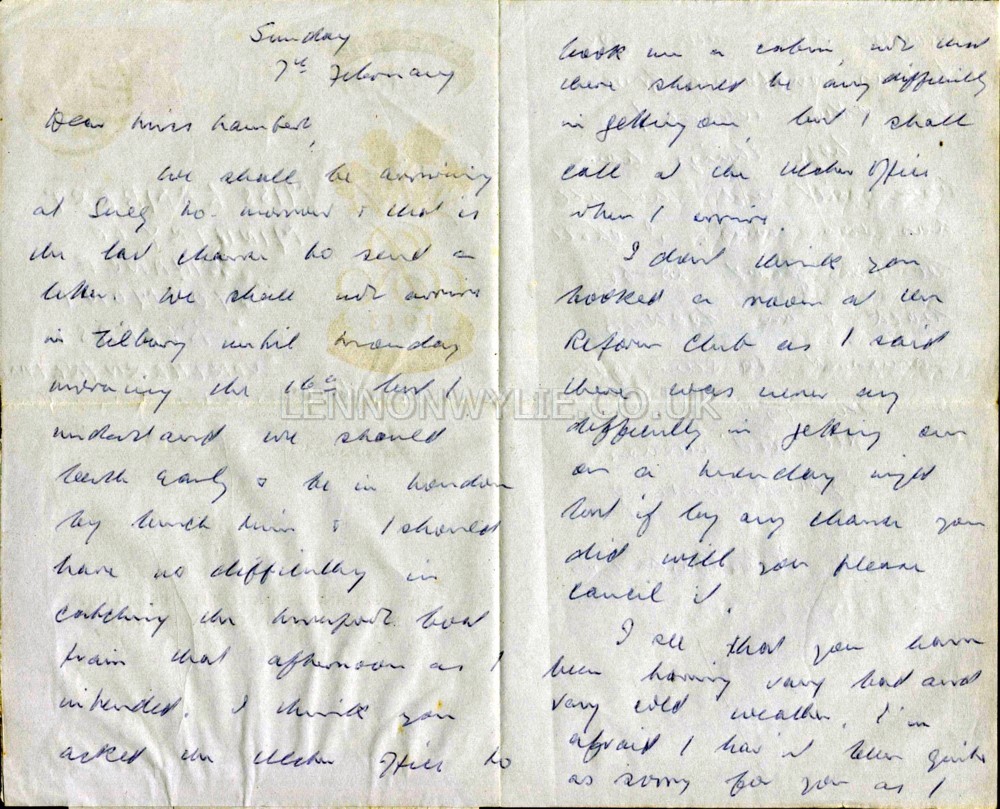 Sunday
7th February
Dear Miss Lambert,
We shall be arriving
at Suez to-morrow & that is
the last chance to send a
letter. We shall not arrive
in Tilbury until Monday
morning the 16th but I
understand we should
berth early & be in London
by lunch time & I should
have no difficulty in
catching the Liverpool boat
train that afternoon as I
intended. I think you
asked the Ulster Office to
book me a cabin, not that
there should be any difficulty
in getting one, but I shall
call at the Ulster Office
when I arrive.
I don't think you
booked a room at the
Reform Club as I said
there was never any
difficulty in getting one
on a Monday night
but if by any chance you
did will you please
cancil it.
I see that you have
been having very bad and
very cold weather. I'm
afraid I hav'nt been quite
as sorry for you as I
LENNONWYLIE.CO.UK